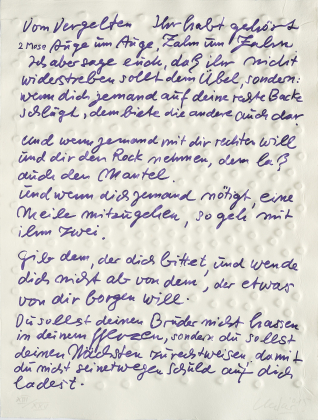 Vom Vergelten Ihr habt gehört
2 Mose Auge um Auge, Zahn um Zahn
Ich aber sage euch, daß ihr nicht
widerstreben sollt dem Übel, sondern:
wenn dich jemand auf deine rechte Backe
schlägt, dem biete die andere auch dar.
und wenn jemand mit dir rechten will
und dir den Rock nehmen, dem laß
auch den Mantel.
und wenn dich jemand nötigt, eine
Meile mitzugehen, so geh mit
ihm zwei.
Gib dem, der dich bittet, und wende
dich nicht ab von dem, der etwas
von dir borgen will.
Du sollst deinen Bruder nicht hassen
in deinem Herzen, sondern du sollst
deinen Nächsten zurechtweisen, damit
du nicht seinetwegen Schuld auf dich
ladest.